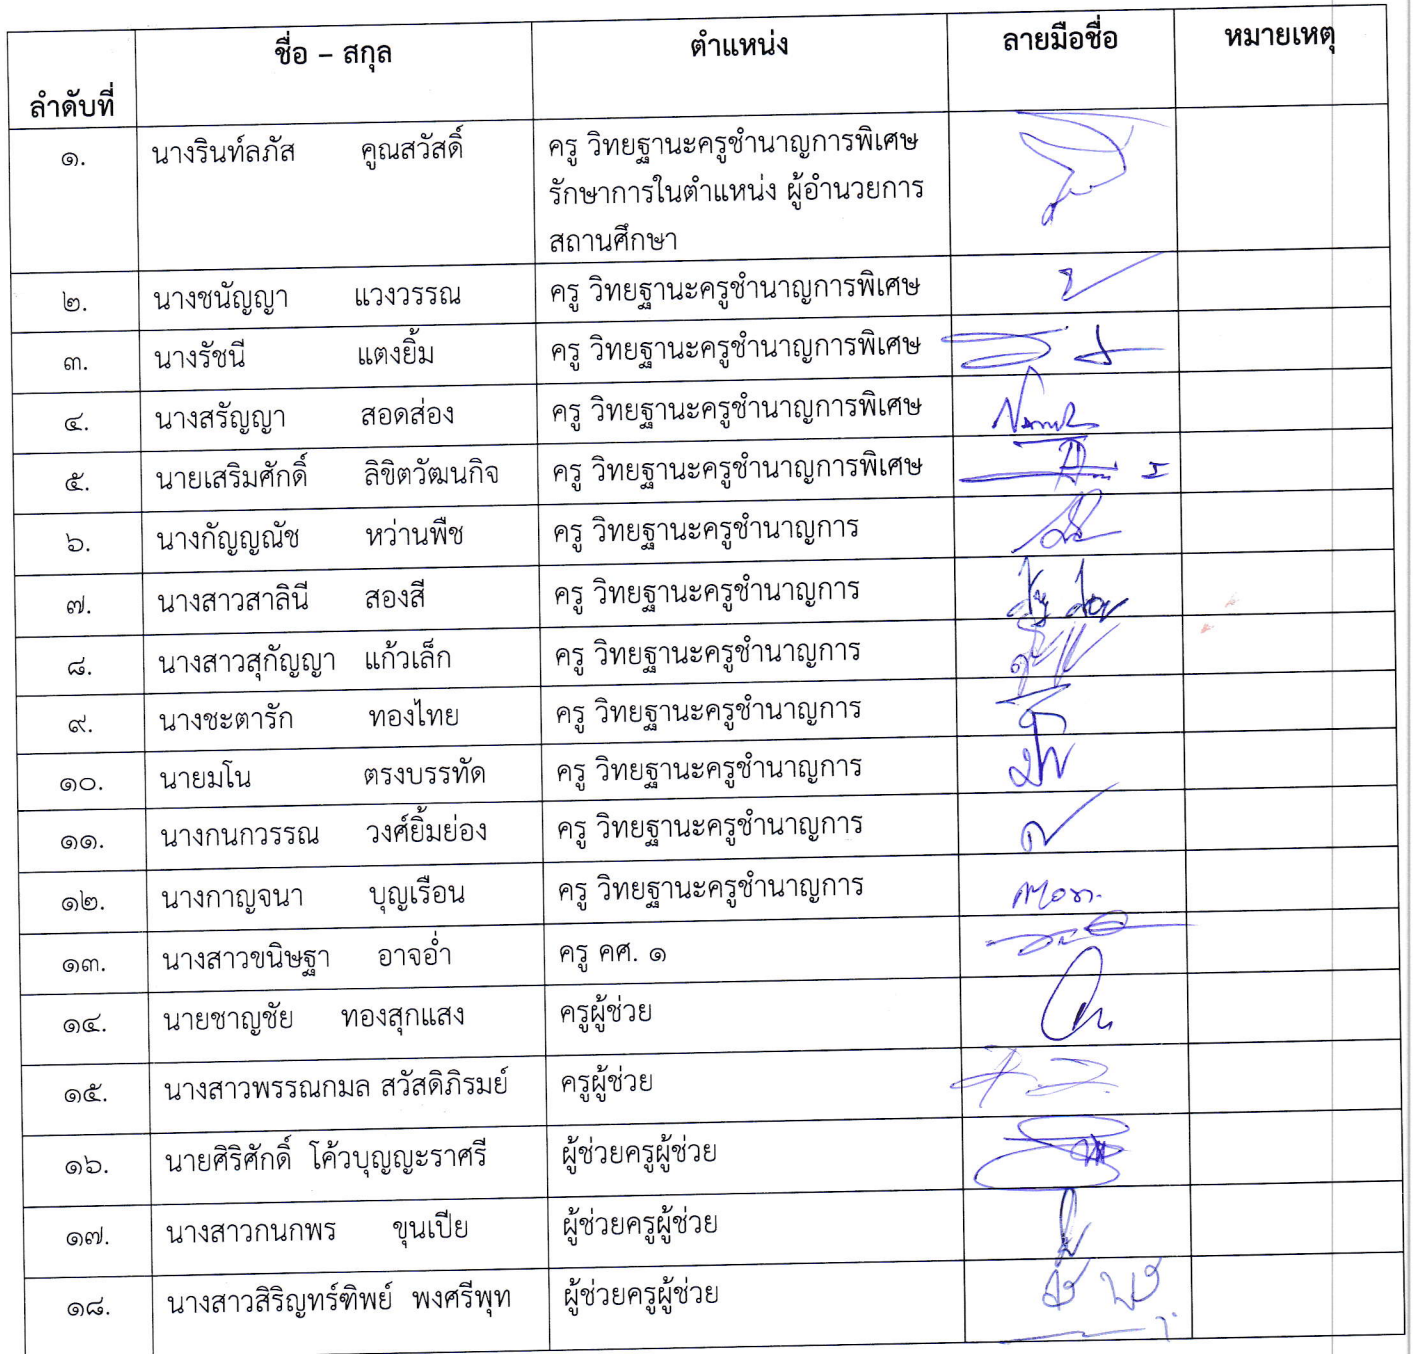 ลำดับที่ ชื่อ – สกุล ตำแหน่ง ลายมือชื่อ หมายเหตุ
๑. นางรินท์ลภัส คูณสวัสดิ์ ครู วิทยฐานะครูชำนาญการพิเศษ
รักษาการในตำแหน่ง ผู้อำนวยการ
สถานศึกษา
๒. นางชนัญญา แวงวรรณ ครู วิทยฐานะครูชำนาญการพิเศษ
๓. นางรัชนี แตงยิ้ม ครู วิทยฐานะครูชำนาญการพิเศษ
๔. นางสรัญญา สอดส่อง ครู วิทยฐานะครูชำนาญการพิเศษ
๕. นายเสริมศักดิ์ ลิขิตวัฒนกิจ ครู วิทยฐานะครูชำนาญการพิเศษ
๖. นางกัญญณัช หว่านพืช ครู วิทยฐานะครูชำนาญการ
๗. นางสาวสาลินี สองสี ครู วิทยฐานะครูชำนาญการ
๘. นางสาวสุกัญญา แก้วเล็ก ครู วิทยฐานะครูชำนาญการ
๙. นางชะตารัก ทองไทย ครู วิทยฐานะครูชำนาญการ
๑๐. นายมโน ตรงบรรทัด ครู วิทยฐานะครูชำนาญการ
๑๑. นางกนกวรรณ วงศ์ยิ้มย่อง ครู วิทยฐานะครูชำนาญการ
๑๒. นางกาญจนา บุญเรือน ครู วิทยฐานะครูชำนาญการ
๑๓. นางสาวขนิษฐา อาจอ่ำ ครู คศ. ๑
๑๔. นายชาญชัย ทองสุกแสง ครูผู้ช่วย
๑๕. นางสาวพรรณกมล สวัสดิภิรมย์ ครูผู้ช่วย
๑๖. นายศิริศักดิ์ โค้วบุญญะราศรี ผู้ช่วยครูผู้ช่วย
๑๗. นางสาวกนกพร ขุนเปีย ผู้ช่วยครูผู้ช่วย
๑๘. นางสาวสิริญทร์ฑิพย์ พงศรีพุท ผู้ช่วยครูผู้ช่วย